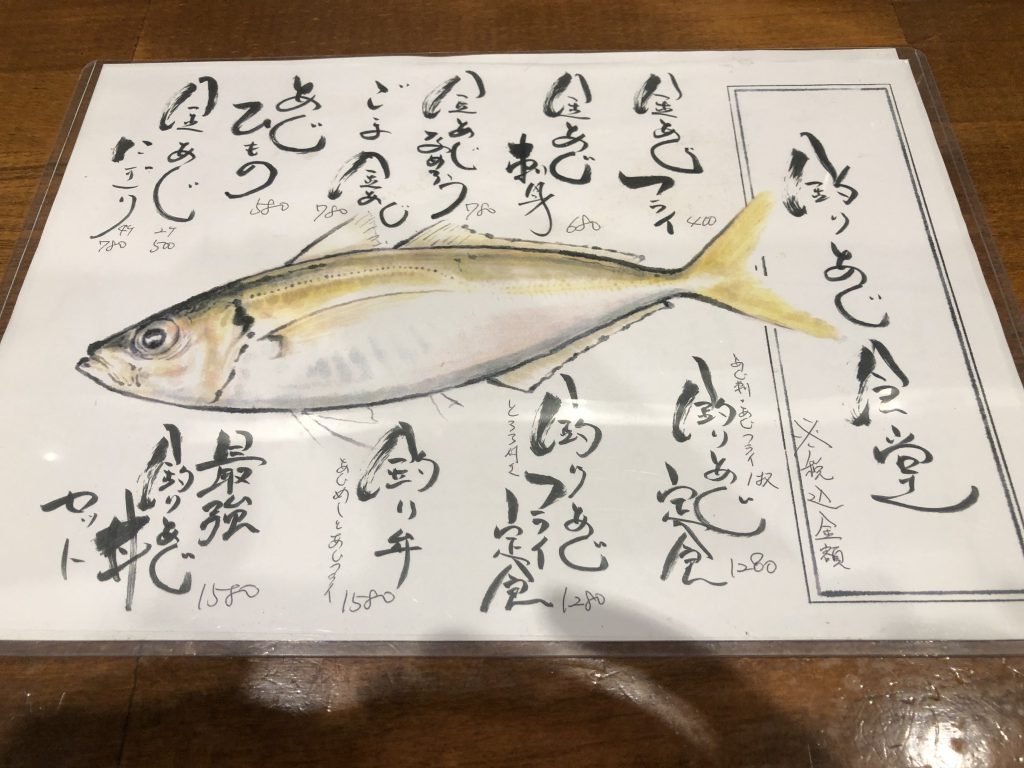 釣りあじ食堂
※税込金額
金あじフライ
400
金あじ刺身
680
金あじなめろう
780
ごま金あじ
780
あじひもの
580
金あじにぎり
2ケ 500
4ケ 780
釣りあじ定食
あじ刺・あじフライ1枚
1280
釣りあじフライ定食
とろろ付き
1280
釣り弁
あじめしとあじフライ
1580
最強
釣りあじ丼
セット
1580